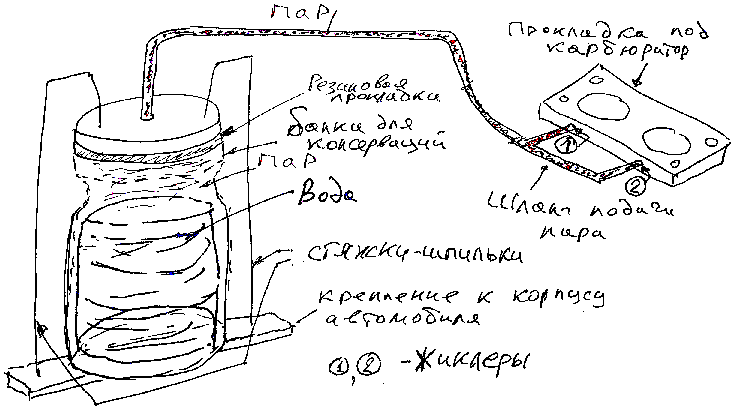 ПаР
Прокладка под
карбюратор
Резиновая
прокладка
банка для
консерваций
ПаР
Вода
①
②
Шланг подачи
пара
стяжки-шпильки
крепление к корпусу
автомобиля
①,② -Жиклеры